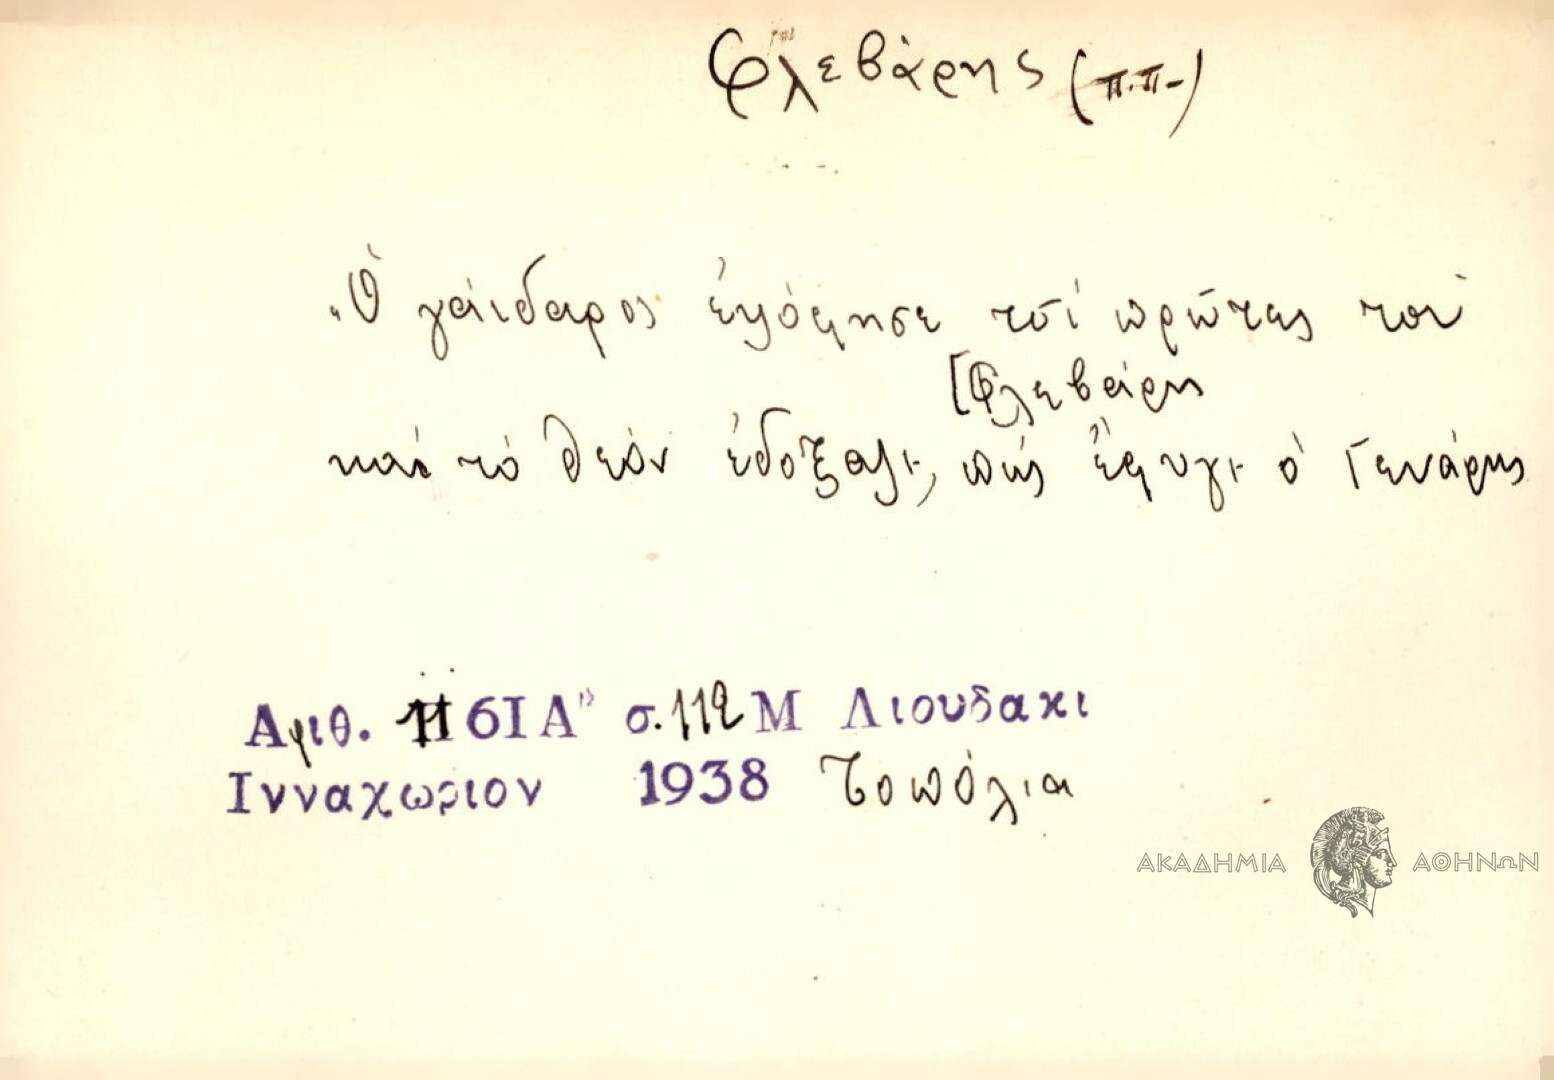 Φλεβάρης (π.π.)
Ὁ γάιδαρος ἐψόφησε τσί πρῶτες τοῦ
[Φλεβάρη
καί τό θεόν ἐδόξαζε, πώς ἔφυγε ὁ Γενάρης
Αριθ. 1161Α" σ.112 Μ Λιουδακι
Ινναχωριον 1938 Τοπόλια
ΑΚΑΔΗΜΙΑ ΑΘΗΝΩΝ